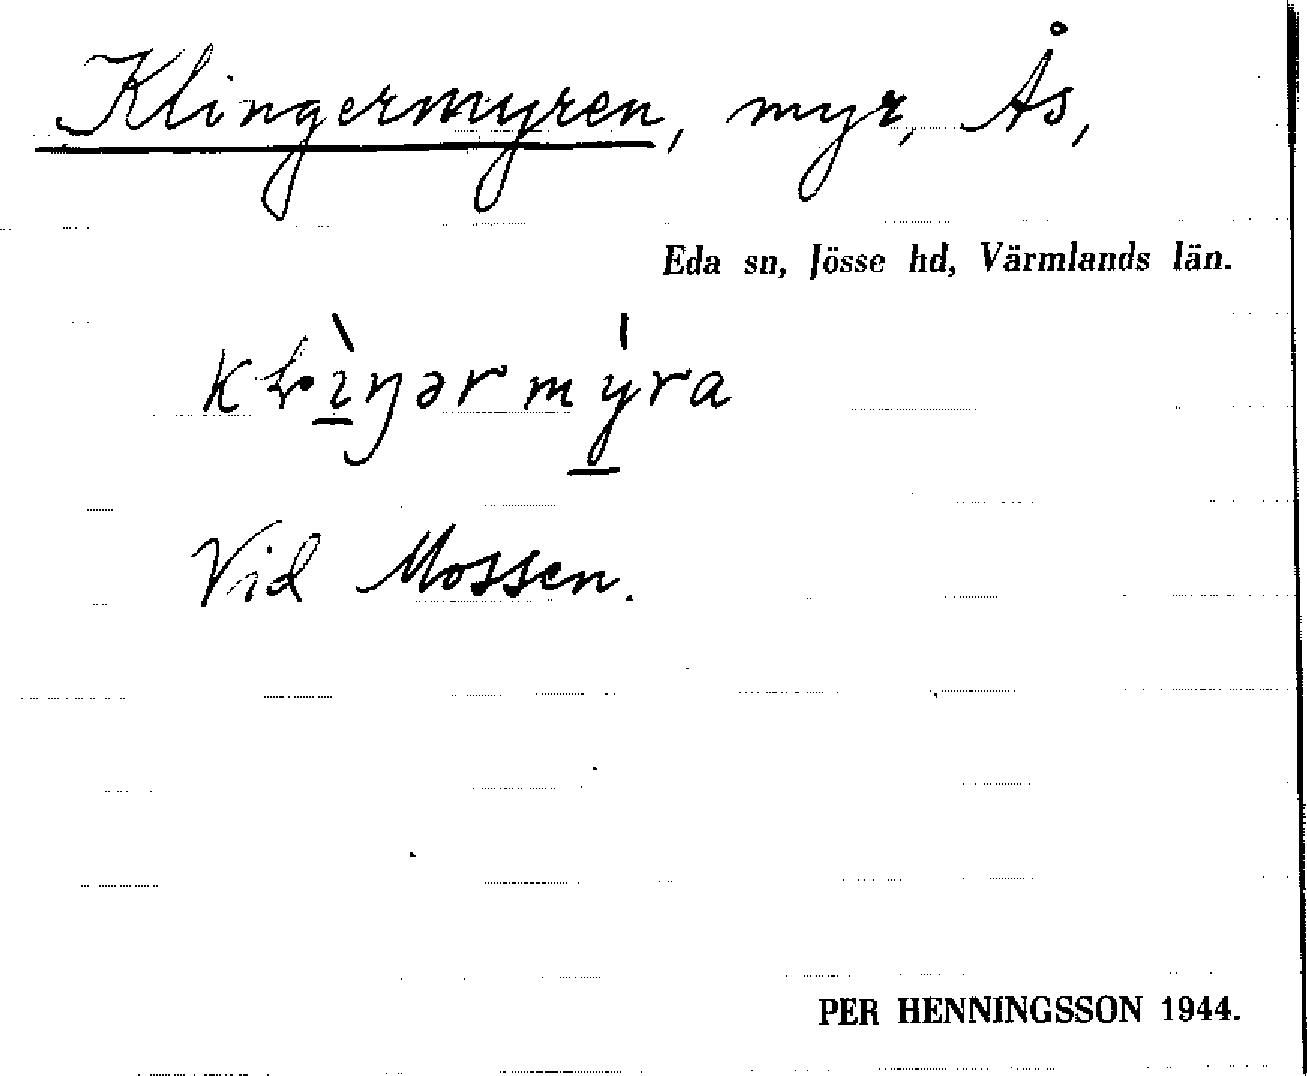 Klingermyren, myr, Ås,
Eda sn, Jösse hd, Värmlands län.
Vid Mossen.
PER HENNINGSSON 1944.